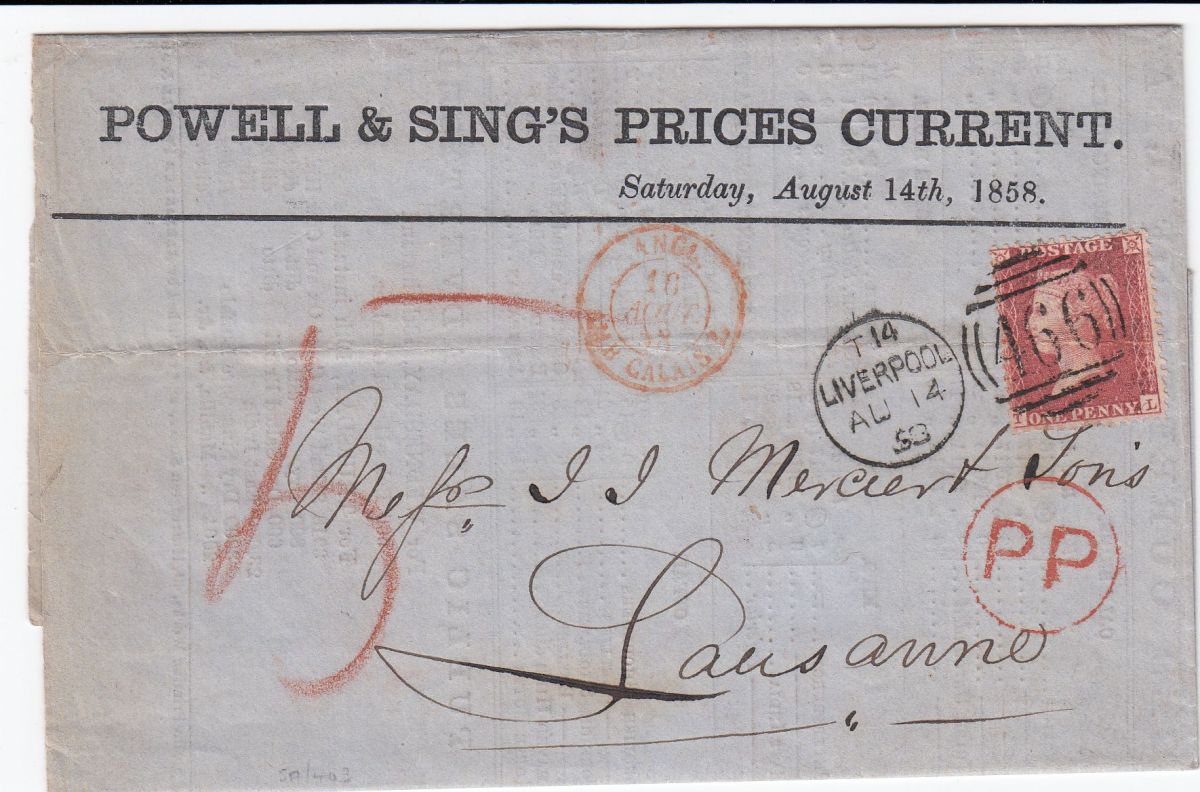 POWELL & SING'S PRICES CURRENT.
Saturday, August 14th, 1858.
POSTAGE
ONE PENNY
T L
466
ANGL.
16
AOUT
CALAIS 2
T 14
LIVERPOOL
AU 14
58
15
Messrs. J J Mercier & Sons
PP
Lausanne